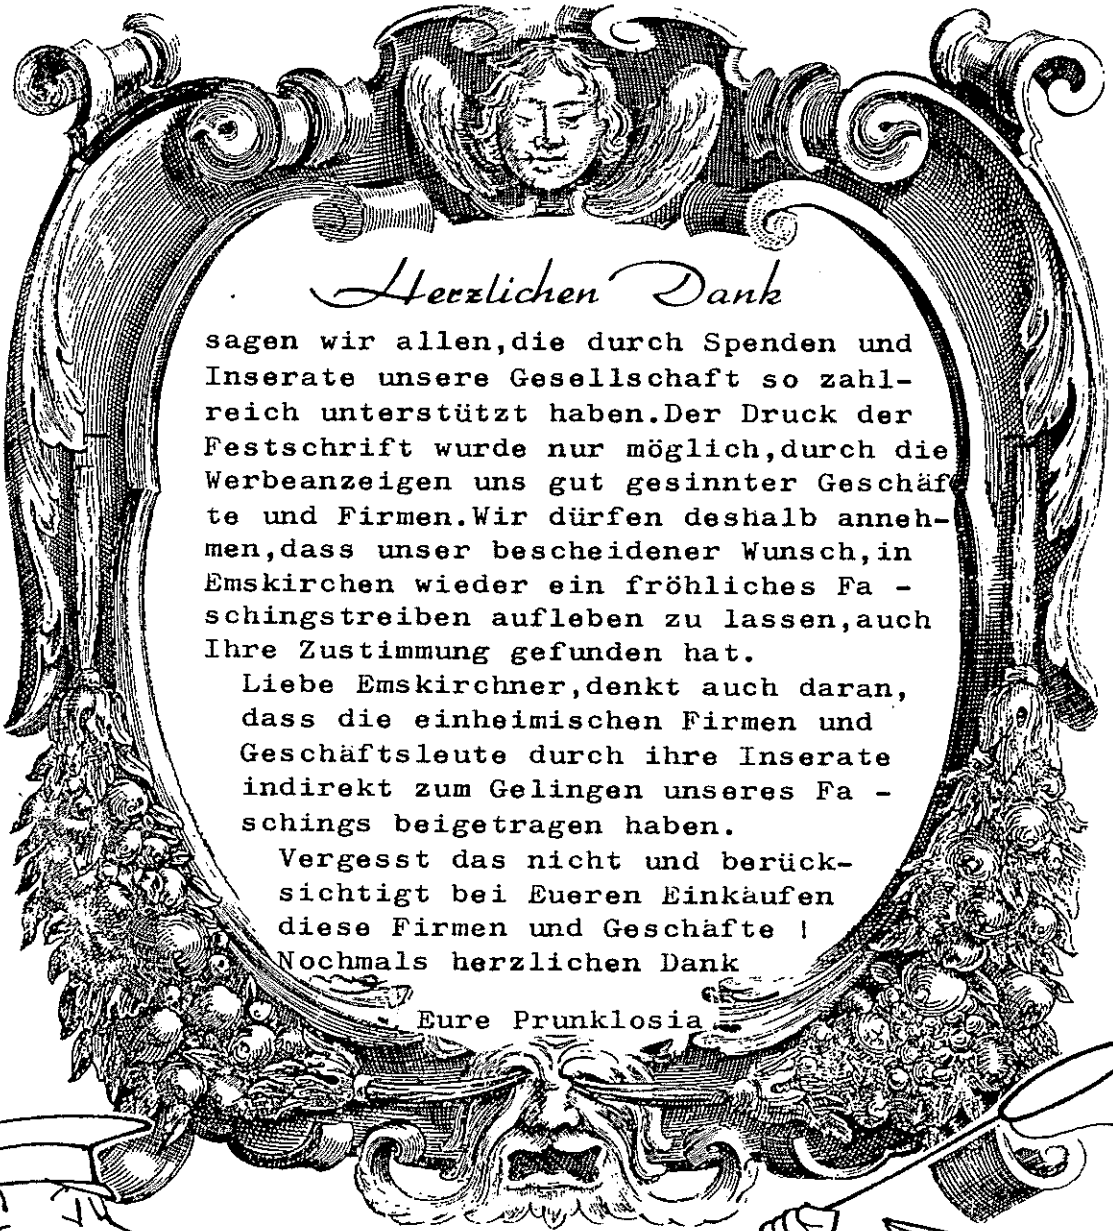 Herzlichen Dank
sagen wir allen,die durch Spenden und
Inserate unsere Gesellschaft so zahl-
reich unterstützt haben.Der Druck der
Festschrift wurde nur möglich,durch die
Werbeanzeigen uns gut gesinnter Geschäf
te und Firmen.Wir dürfen deshalb anneh-
men,dass unser bescheidener Wunsch,in
Emskirchen wieder ein fröhliches Fa -
schingstreiben aufleben zu lassen,auch
Ihre Zustimmung gefunden hat.
Liebe Emskirchner,denkt auch daran,
dass die einheimischen Firmen und
Geschäftsleute durch ihre Inserate
indirekt zum Gelingen unseres Fa -
schings beigetragen haben.
Vergesst das nicht und berück-
sichtigt bei Eueren Einkäufen
diese Firmen und Geschäfte !
Nochmals herzlichen Dank
Eure Prunklosia